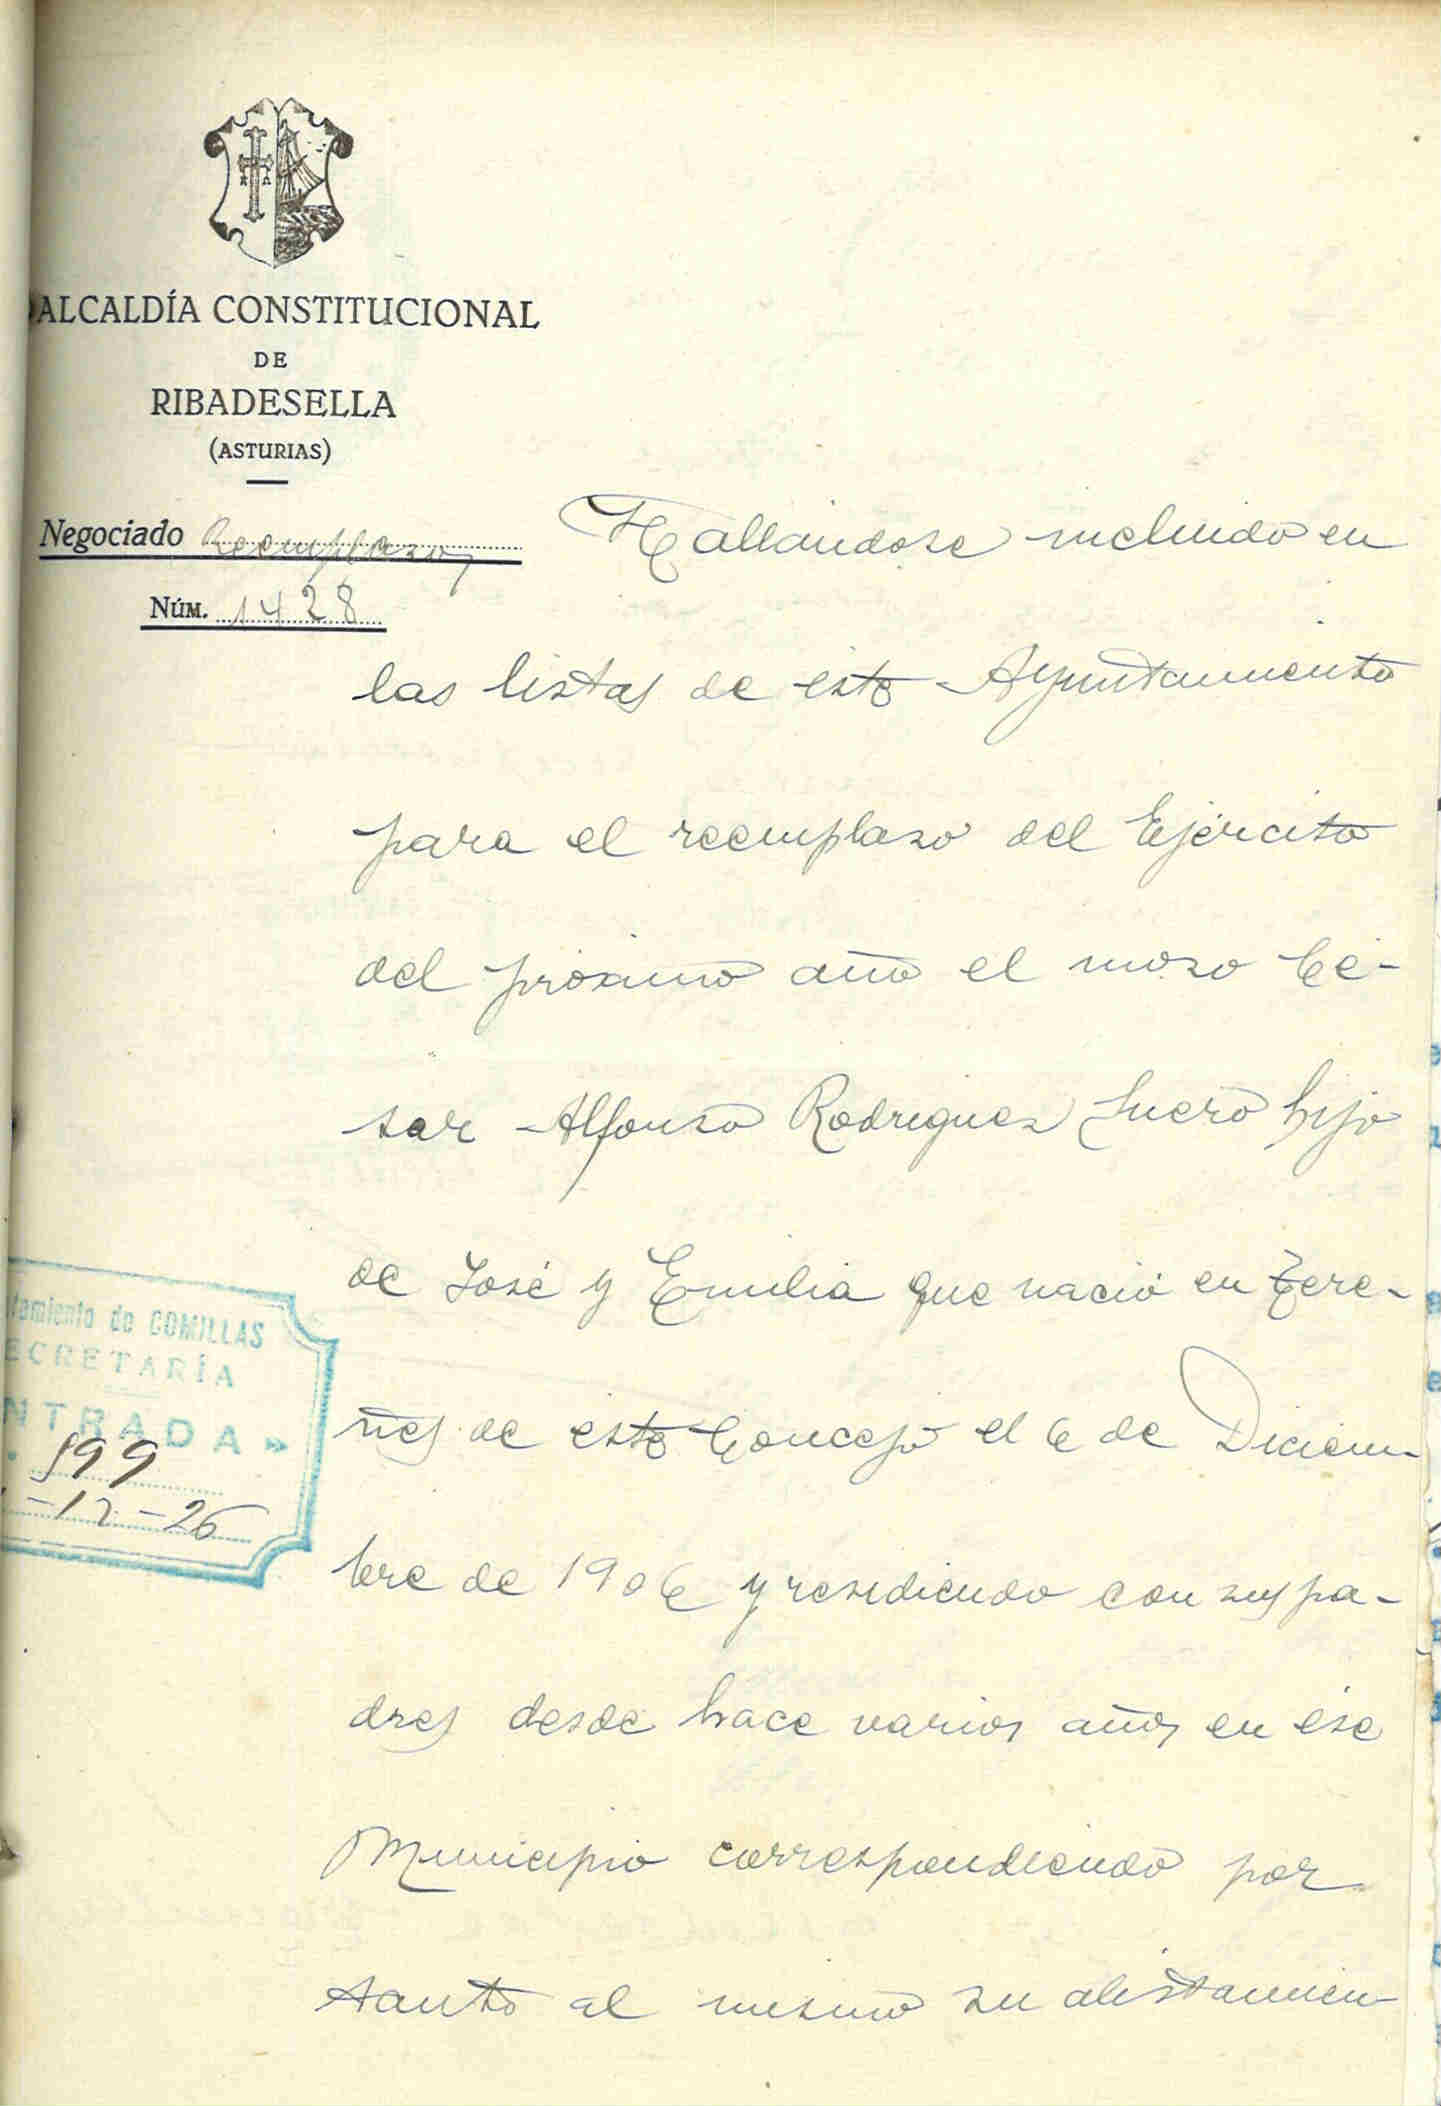 ALCALDÍA CONSTITUCIONAL
DE
RIBADESELLA
(ASTURIAS)
Negociado Reemplazos
NÚM. 1428
Hallándose incluido en
las listas de este Ayuntamiento
para el reemplazo del Ejército
del próximo año el mozo Cé-
sar Alfonso Rodriguez Suero hijo
de José y Emilia que nació en Cere-
ñes de este Concejo el 6 de Diciem-
bre de 1906 y residiendo con sus pa-
dres desde hace varios años en ese
Municipio correspondiendo por
tanto al mismo su alistamien-
tamiento de COMILLAS
ECRETARÍA
NTRADA»
599
-12-26